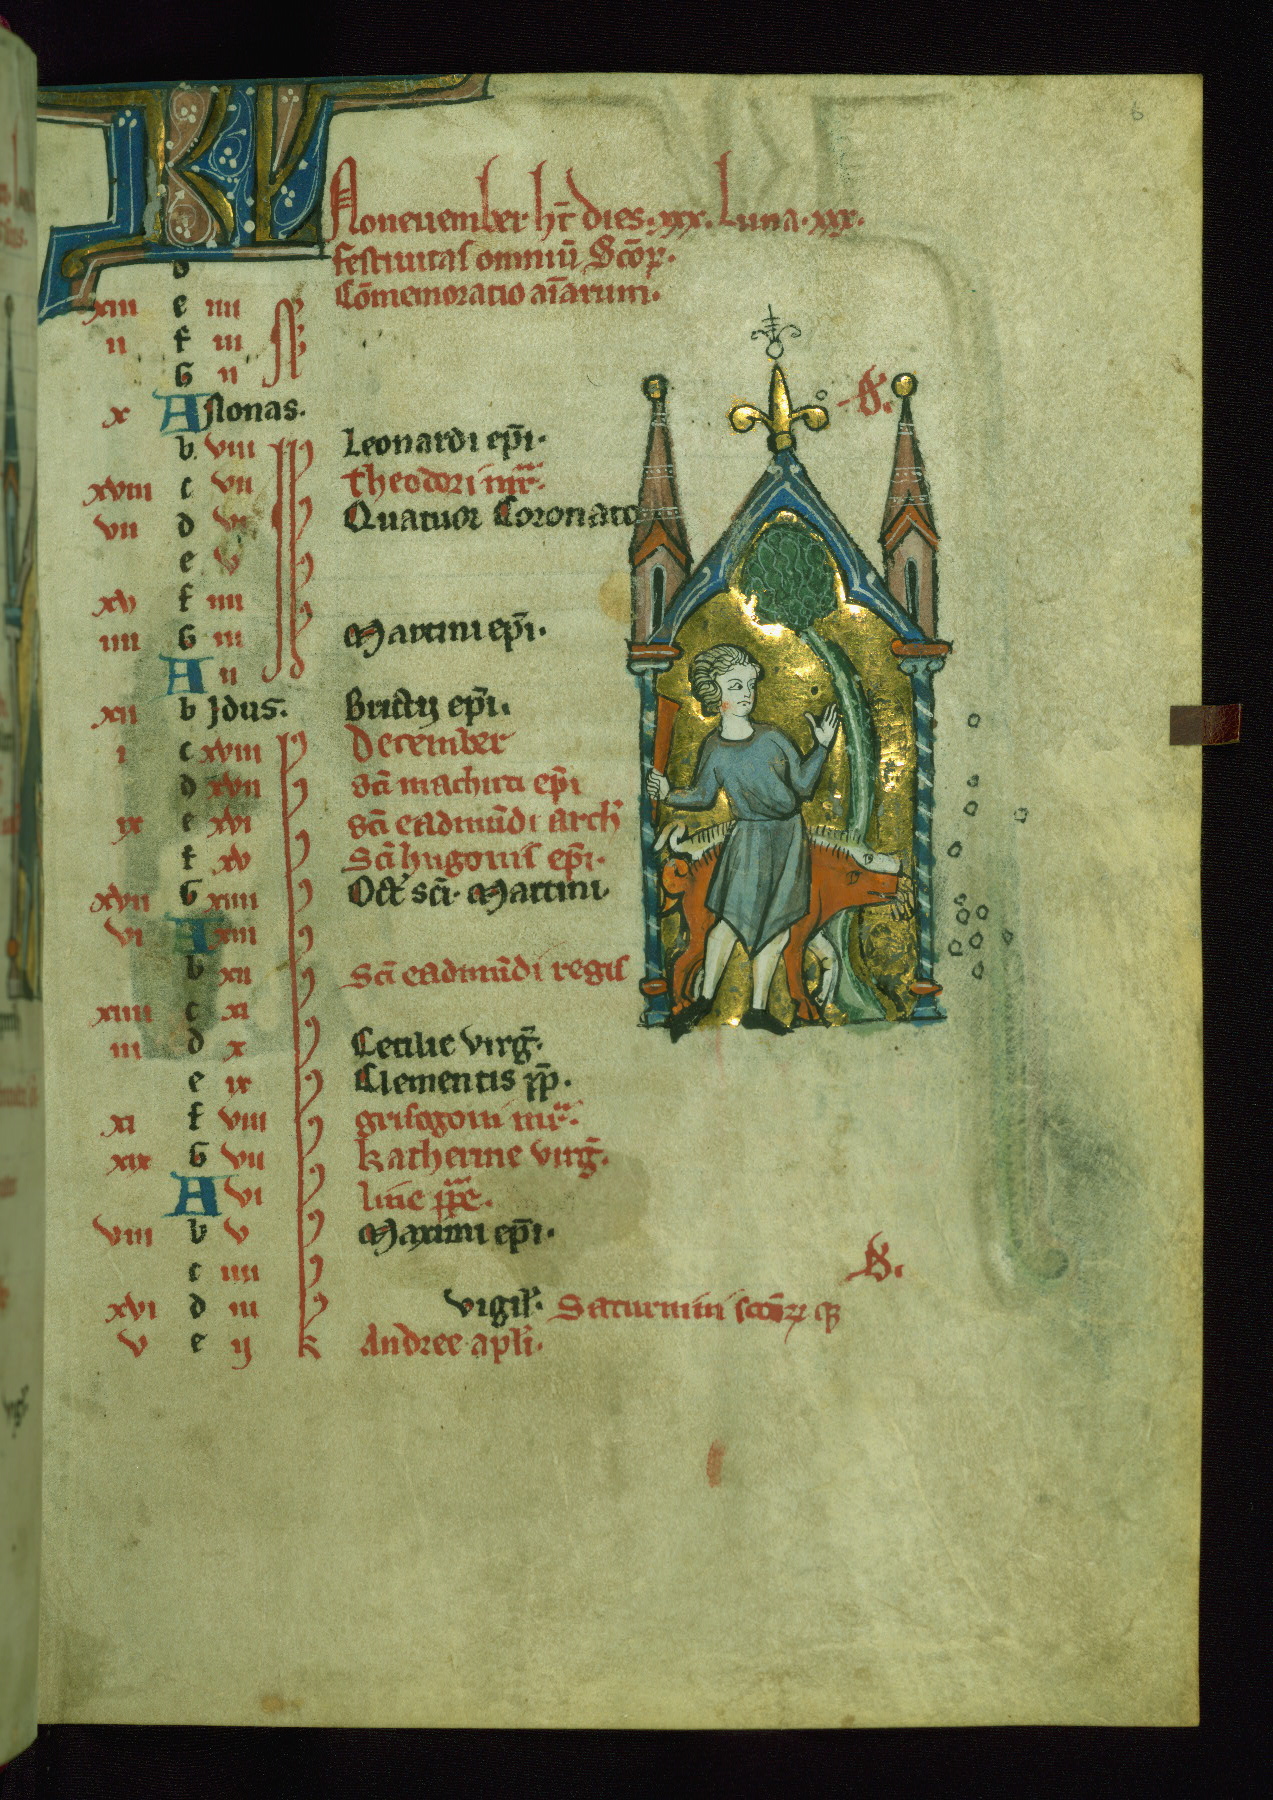 6
KL Noneuember ht̄ dies. xxx. Luna. xxx.
d festiuitas omniū Sc̄oꝝ.
xiii e iiii Cōmemoratio aīarum.
ii f iii
G ii
x A Nonas.
b viii Leonardi ep̄i.
xviii c vii Theodori mr̄.
vii d vi Quatuor Coronato
e v
xv f iiii
iiii G iii Martini ep̄i.
A ii
xii b Jdus. Brictij ep̄i.
i c xviii December
d xvii sc̄i machuti ep̄i
ix e xvi sc̄i eadmūdi arch
f xv Sc̄i hugonis ep̄i.
xvii G xiiii Oct̄ sc̄i. Martini
vi A xiii
b xii sc̄i eadmūdi regis
xiiii c xi
iii d x Cecilie virḡ.
e ix Clementis pp̄.
xi f viii grisogoni mr̄.
xix G vii katherine virḡ.
A vi line pp̄e.
viii b v Maximi ep̄i.
c iiii
xvi d iii vigil'. Saturnini
v e ij k Andree apli.